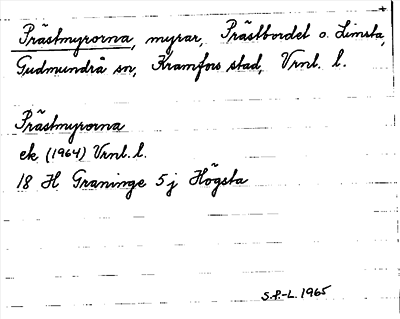 Prästmyrorna, myrar, Prästbordet o. Limsta,
Gudmundrå sn, Kramfors stad, Vrnl. l.
Prästmyrorna
ek. (1964) Vrnl. l.
18 H Graninge 5 j Högsta
S.P.-L. 1965